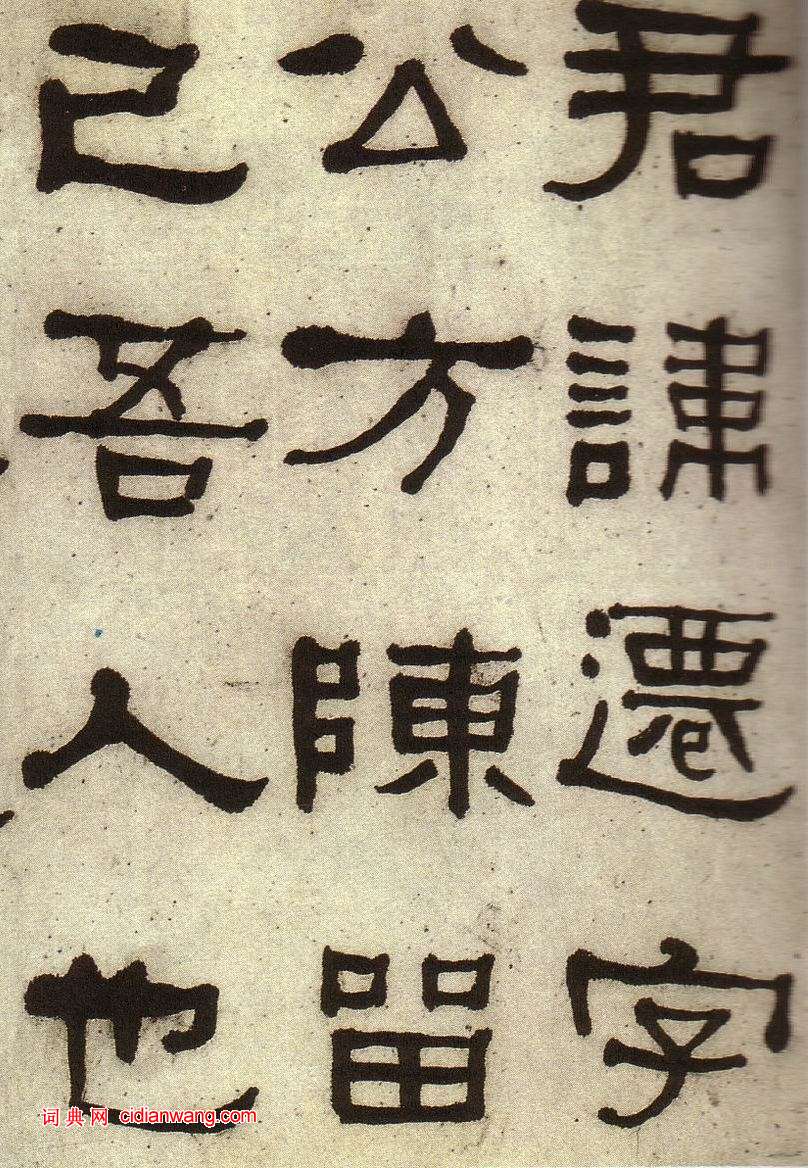 君諱遷字
公方陳留
己吾人也
词典网 cidianwang.com